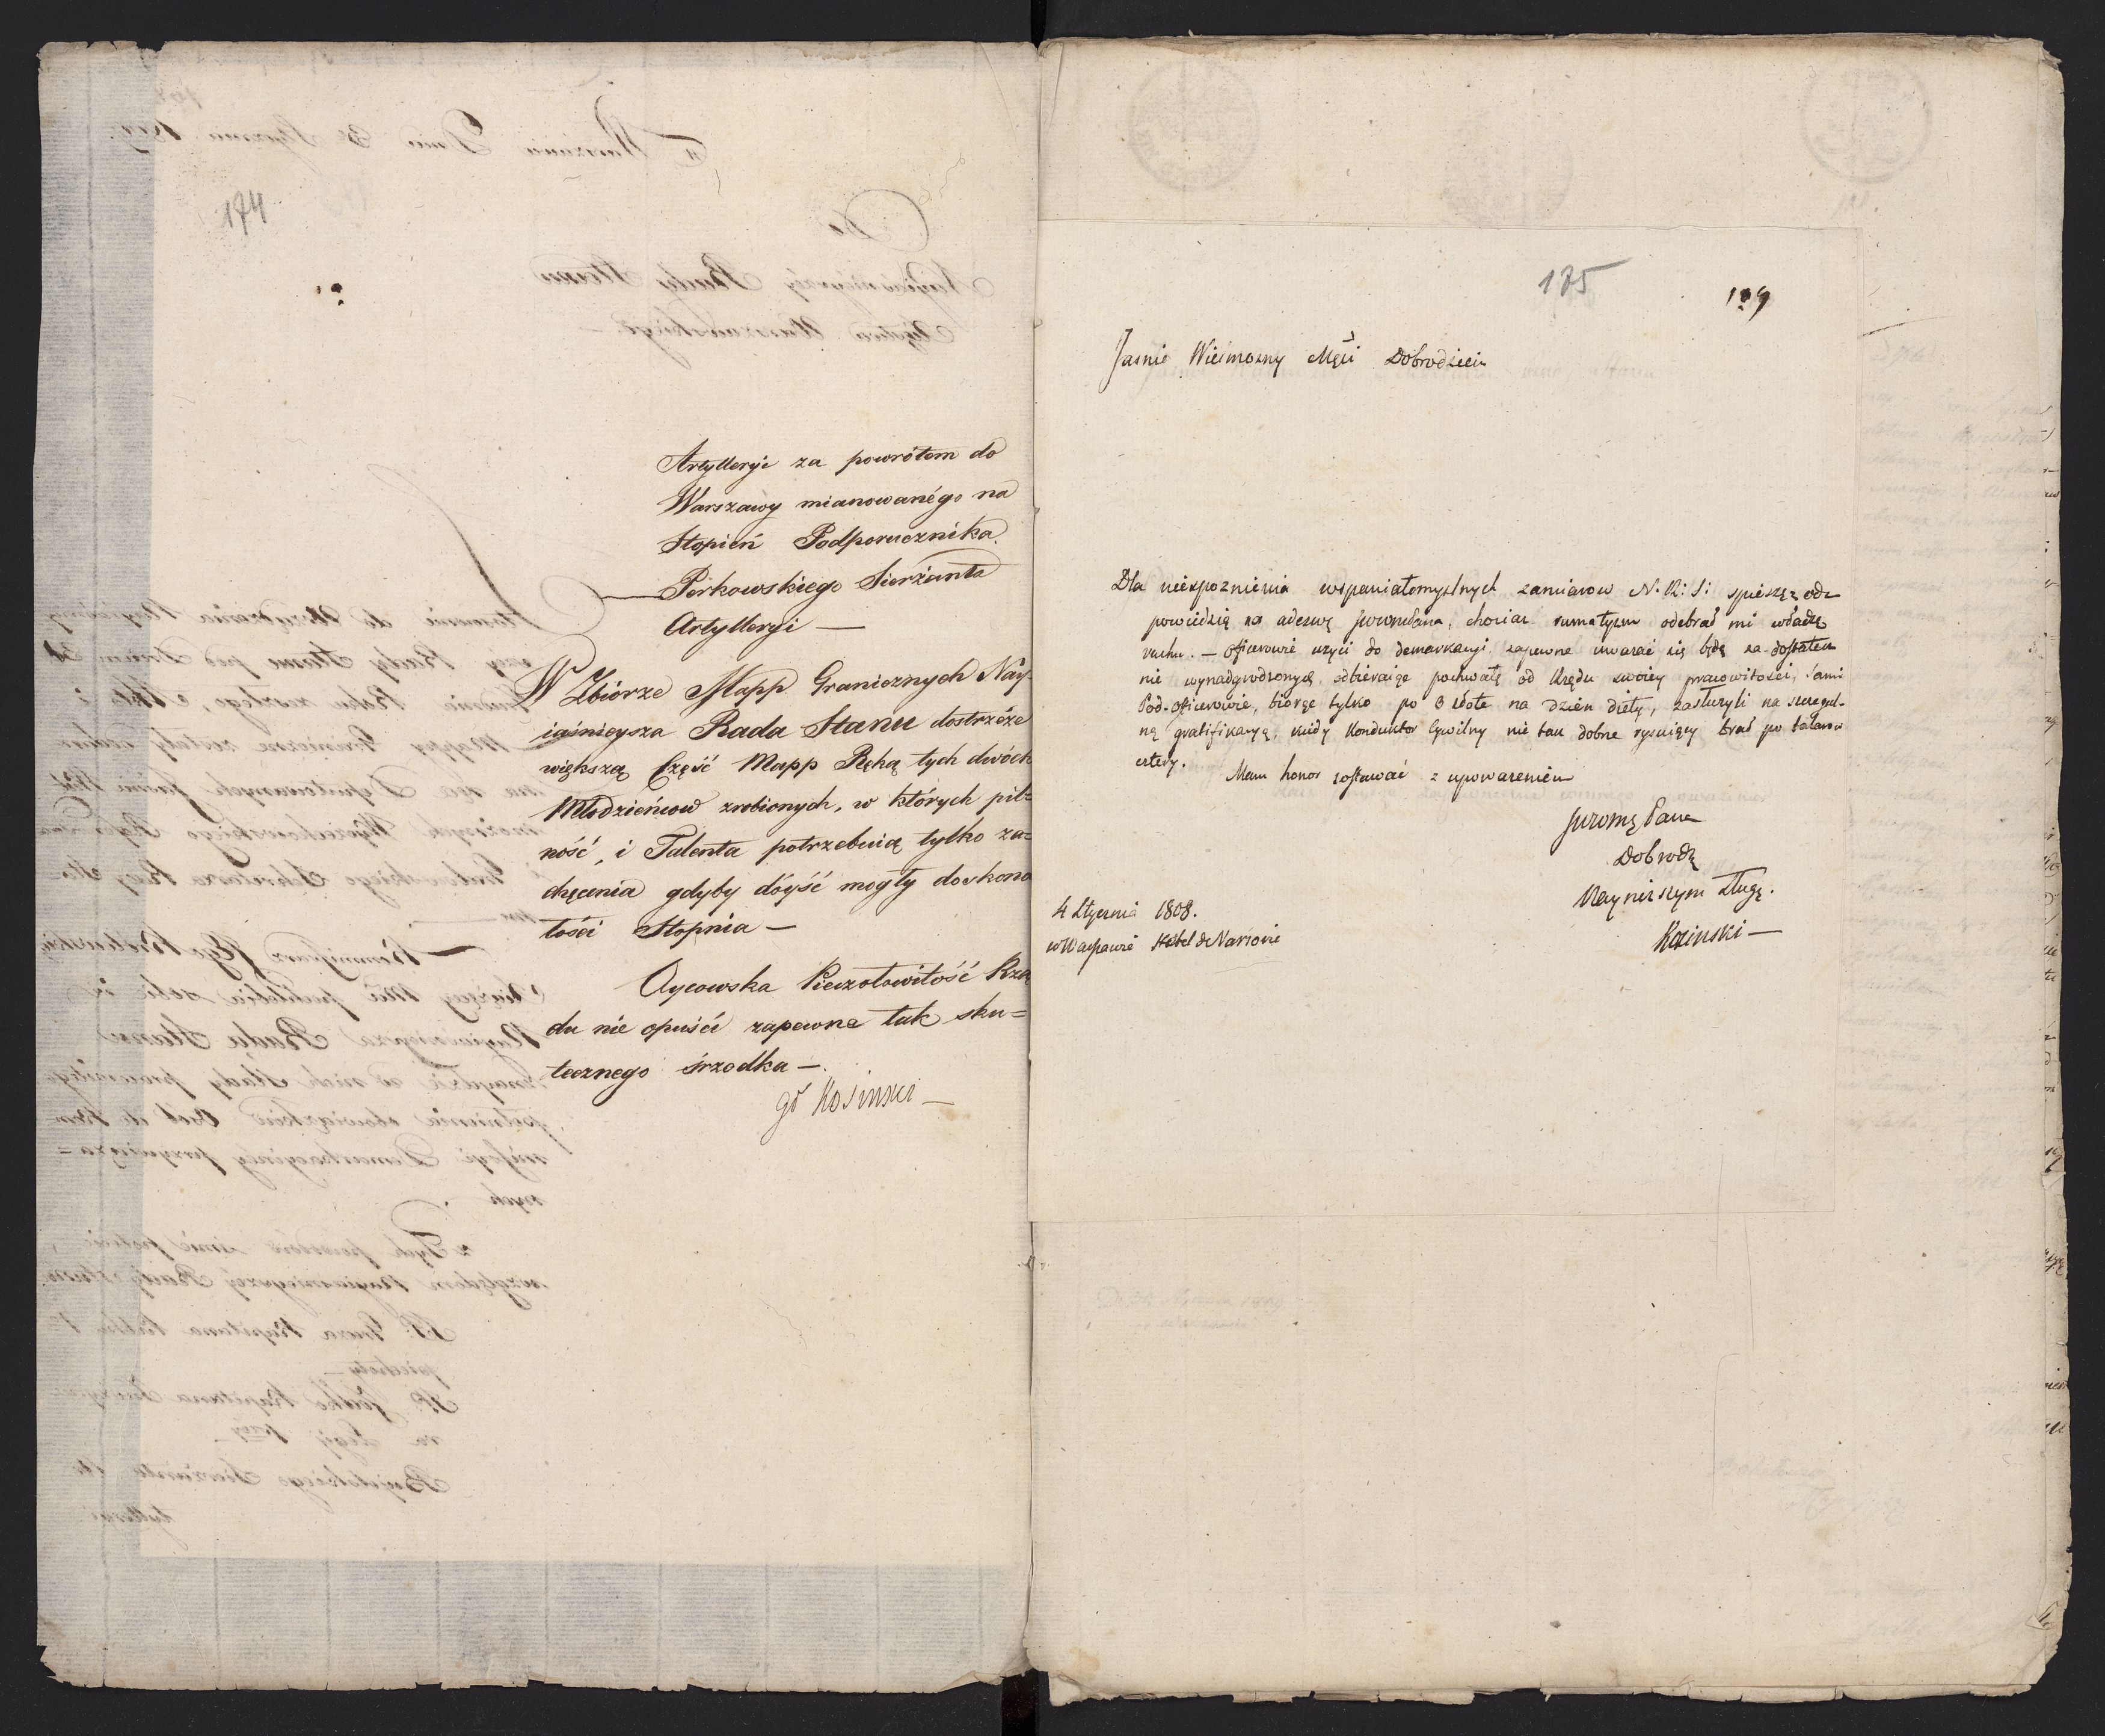 174
Artylleryi za powrótem do
Warszawy mianowanégo na
Stopień Podporucznika.
Perkowskiego Sierżanta
Artylleryi —
W Zbiorze Mapp Granicznych Nay-
iaśnieysza Rada Stanu dostrzéże
większą Część Mapp Ręką tych dwóch
Młodzieńcow zrobionych, w których pil=
ność, i Talenta potrzebuią tylko za=
chęcenia gdyby dóyść mogły doskona
łości Stopnia —
Oycowska Pieczołowitość Rzą
du nie opuści zapewne tak sku=
tecznego śrzodka —.
Kosinski —
175
Jasnie Wielmozny Mści Dobrodzieiu
Dla nieuspoznienia wspaniałomyslnych zamiarow N. R: S: spieszę z od=
powiedzią na adezwę Pana, chociaz rumatyzm odebrał mi władzę
ruchu. — Oficerowie uzyci do demarkacyi zapewne uwarzać się będą za dostatecz
nie wynadgrodzonych, odbieraiąc pochwałę od Rządu swoiey prawowitosci, sami
Pod-oficerowie, biorąc tylko po 3 złote na Dzien diety, zasłuzyli na szczegul-
ną gratifikacyą, kiedy Konduktor Cywilny nie tak dobrze rysuiący brał po talarow
cztery.
Mam honor zostawać z upowarzeniem
Pana
Dobrodz
Nayniszym Sługą.
Kosinski —
4 Stycznia 1808.
w Warszawie Hotel de Varsovie